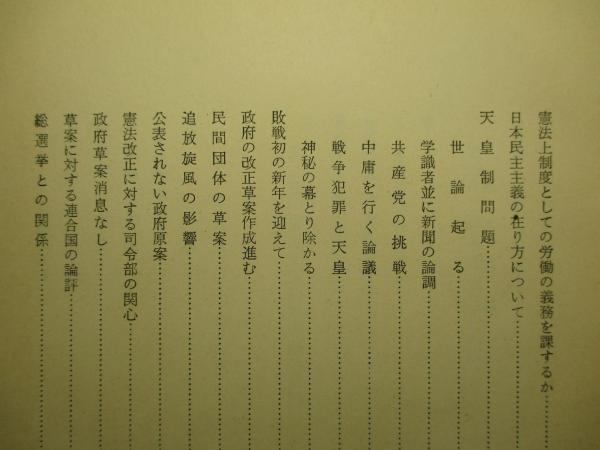 憲法上制度としての労働の義務を課するか
日本民主主義の在り方について
天皇制問題
世論起る
学識者並に新聞の論調
共産党の挑戦
中庸を行く論議
戦争犯罪と天皇
神秘の幕とり除かる
敗戦初の新年を迎えて
政府の改正草案作成進む
民間団体の草案
追放旋風の影響
公表されない政府原案
憲法改正に対する司令部の関心
政府草案消息なし
草案に対する連合国の論評
総選挙との関係